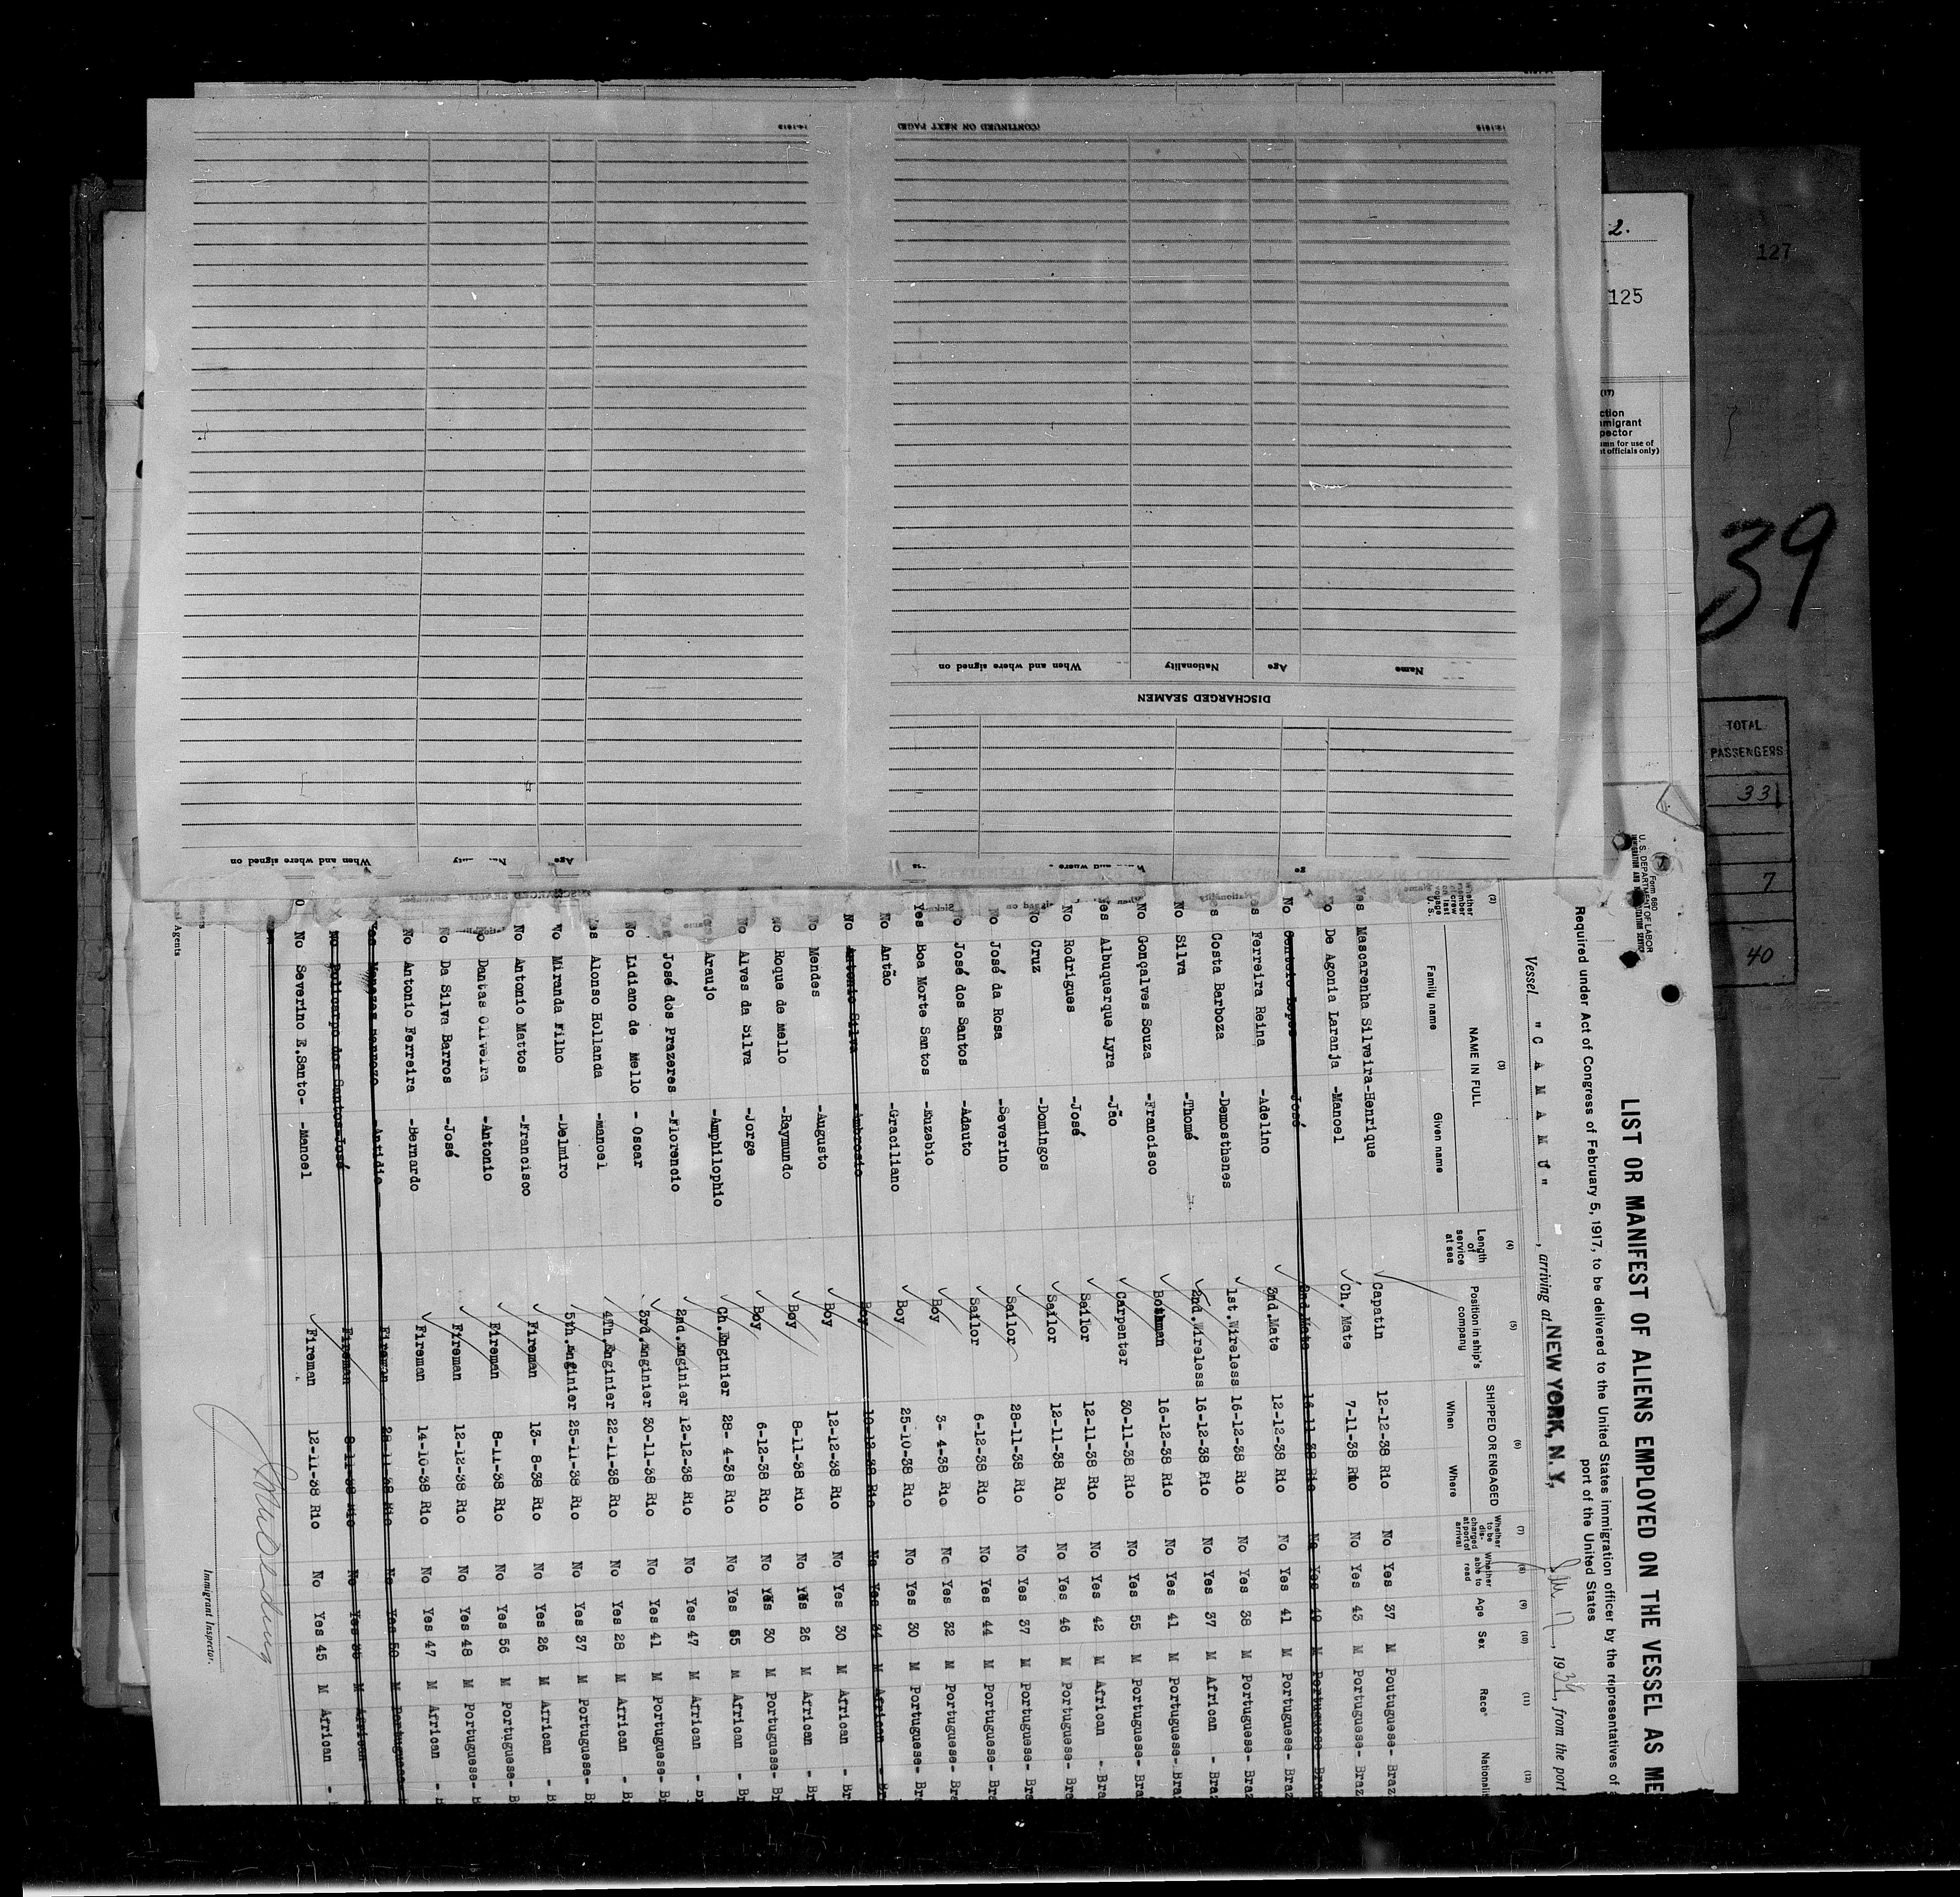 2.
127
125
(17)
ction
mmigrant
pector
umn for use of
t officials only)
39
TOTAL
PASSENGERS
331
7
40
(CONTINUED ON NEXT PAGE)
Name
Age
Nationality
When and where signed on
DISCHARGED SEAMEN
Age
When and where signed on
Form 680
U. S. DEPARTMENT OF LABOR
LIST OR MANIFEST OF ALIENS EMPLOYED ON THE VESSEL AS ME
Required under Act of Congress of February 5, 1917, to be delivered to the United States immigration officer by the representatives of a
port of the United States
Vessel "CAMAMÚ", arriving at NEW YORK, N. Y., 1939, from the port
(2) (3) (4) (5) (6) (7) (8) (9) (10) (11) (12)
NAME IN FULL
Family name Given name
Length of service at sea
Position in ship's company
SHIPPED OR ENGAGED
When Where
Whether to be discharged at port of arrival
Whether able to read
Age Sex Race*
Yes Mascarenha Silveira-Henrique Capatin 12-12-38 Rio No Yes 37 M Poutuguese- Braz
No De Agonia Laranja -Manoel Ch. Mate 7-11-38 Rio No Yes 43 M Portuguese- Braz
No Lopes José 2nd.Mate 16-11-38 Rio No Yes 49 M Portuguese Braz
Ferreira Reina -Adelino 3nd.Mate 12-12-38 Rio No Yes 41 M Portuguese- Braz
Costa Barboza -Demosthenes 1st.Wireless 16-12-38 Rio No Yes 38 M Portuguese- Braz
No Silva -Thomé 2nd.Wireless 16-12-38 Rio No Yes 37 M African - Braz
No Gonçalves Souza -Francisco Bothman 16-12-38 Rio No Yes 41 M Portuguese- Braz
Yes Albuquerque Lyra -Jão Carpenter 30-11-38 Rio No Yes 55 M Portuguese- Bra
No Rodrigues -José Sailor 12-11-38 Rio No Yes 42 M African - Bra
No Cruz -Domingos Sailor 12-11-38 Rio No Yes 46 M Portuguese- Bra
No José da Rosa -Severino Sailor 28-11-38 Rio No Yes 37 M Portuguese- Bra
No José dos Santos -Adauto Sailor 6-12-38 Rio No Yes 44 M Portuguese- Bra
Yes Boa Morte Santos -Euzebio Boy 3- 4-38 Rio No Yes 32 M Portuguese- Bra
No Antão -Graciliano Boy 25-10-38 Rio No Yes 30 M Portuguese- Bra
No Antonio Silva -Ambrosio Boy 10-12-38 Rio No Yes 34 M African - Br
No Mendes -Augusto Boy 12-12-38 Rio No Yes 30 M African - Br
No Roque de Mello -Raymundo Boy 8-11-38 Rio No Yes 26 M African - Br
No Alves da Silva -Jorge Boy 6-12-38 Rio No Yes 30 M Portuguese- Br
Araujo -Amphilophio Ch.Enginier 28- 4-38 Rio No Yes 55 M African - Br
José dos Prazeres -Florencio 2nd.Enginier 12-12-38 Rio No Yes 47 M African - Br
No Lidiano de Mello - Oscar 3rd.Enginier 30-11-38 Rio No Yes 41 M Portuguese- Br
Alonso Hollanda -Manoel 4th.Enginier 22-11-38 Rio No Yes 28 M African - Br
No Miranda Filho -Delmiro 5th.Enginier 25-11-38 Rio No Yes 37 M Portuguese- B
No Antonio Mattos -Francisco Fireman 13- 8-38 Rio No Yes 26 M African - B
No Dantas Oliveira -Antonio Fireman 8-11-38 Rio No Yes 56 M Portuguese- B
No Da Silva Barros -José Fireman 12-12-38 Rio No Yes 48 M Portuguese- B
No Antonio Ferreira -Bernardo Fireman 14-10-38 Rio No Yes 47 M African - B
Yes Menezes -Antidio Fireman 28-11-38 Rio No Yes 50 M Portuguese
No Policarpo dos Santos-José Fireman 8-11-38 Rio No Yes M African
No Severino E.Santo- -Manoel Fireman 12-11-38 Rio No Yes 45 M African -
Agents
Immigrant Inspector.